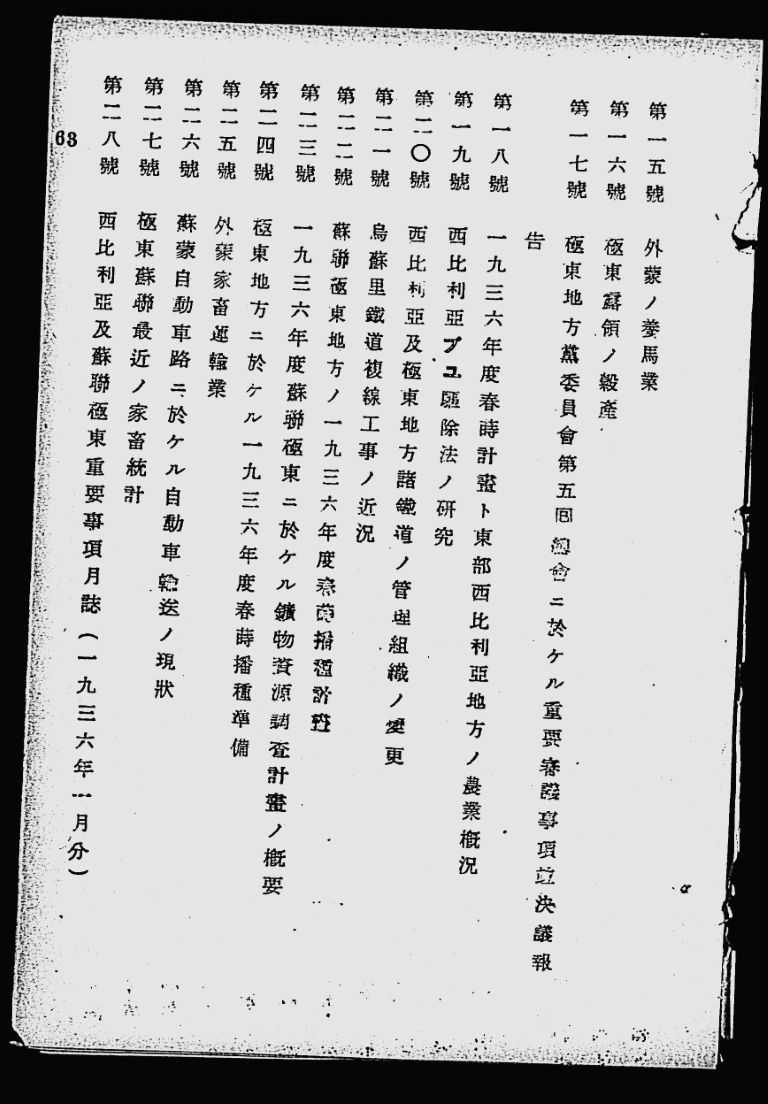 第一五號 外蒙ノ養馬業
第一六號 極東露領ノ穀產
第一七號 極東地方黨委員會第五回總會ニ於ケル重要審議事項竝決議報
告
第一八號 一九三六年度春蒔計畫ト東部西比利亞地方ノ農業槪況
第一九號 西比利亞ブユ驅除法ノ硏究
第二〇號 西比利亞及極東地方諸鐵道ノ管理組織ノ變更
第二一號 烏蘇里鐵道複線工事ノ近況
第二二號 蘇聯極東地方ノ一九三六年度春蒔播種計畫
第二三號 一九三六年度蘇聯極東ニ於ケル鑛物資源調査計畫ノ槪要
第二四號 極東地方ニ於ケル一九三六年度春蒔播種準備
第二五號 外蒙家畜運輸業
第二六號 蘇蒙自動車路ニ於ケル自動車輸送ノ現狀
第二七號 極東蘇聯最近ノ家畜統計
第二八號 西比利亞及蘇聯極東重要事項月誌(一九三六年 月分)
63